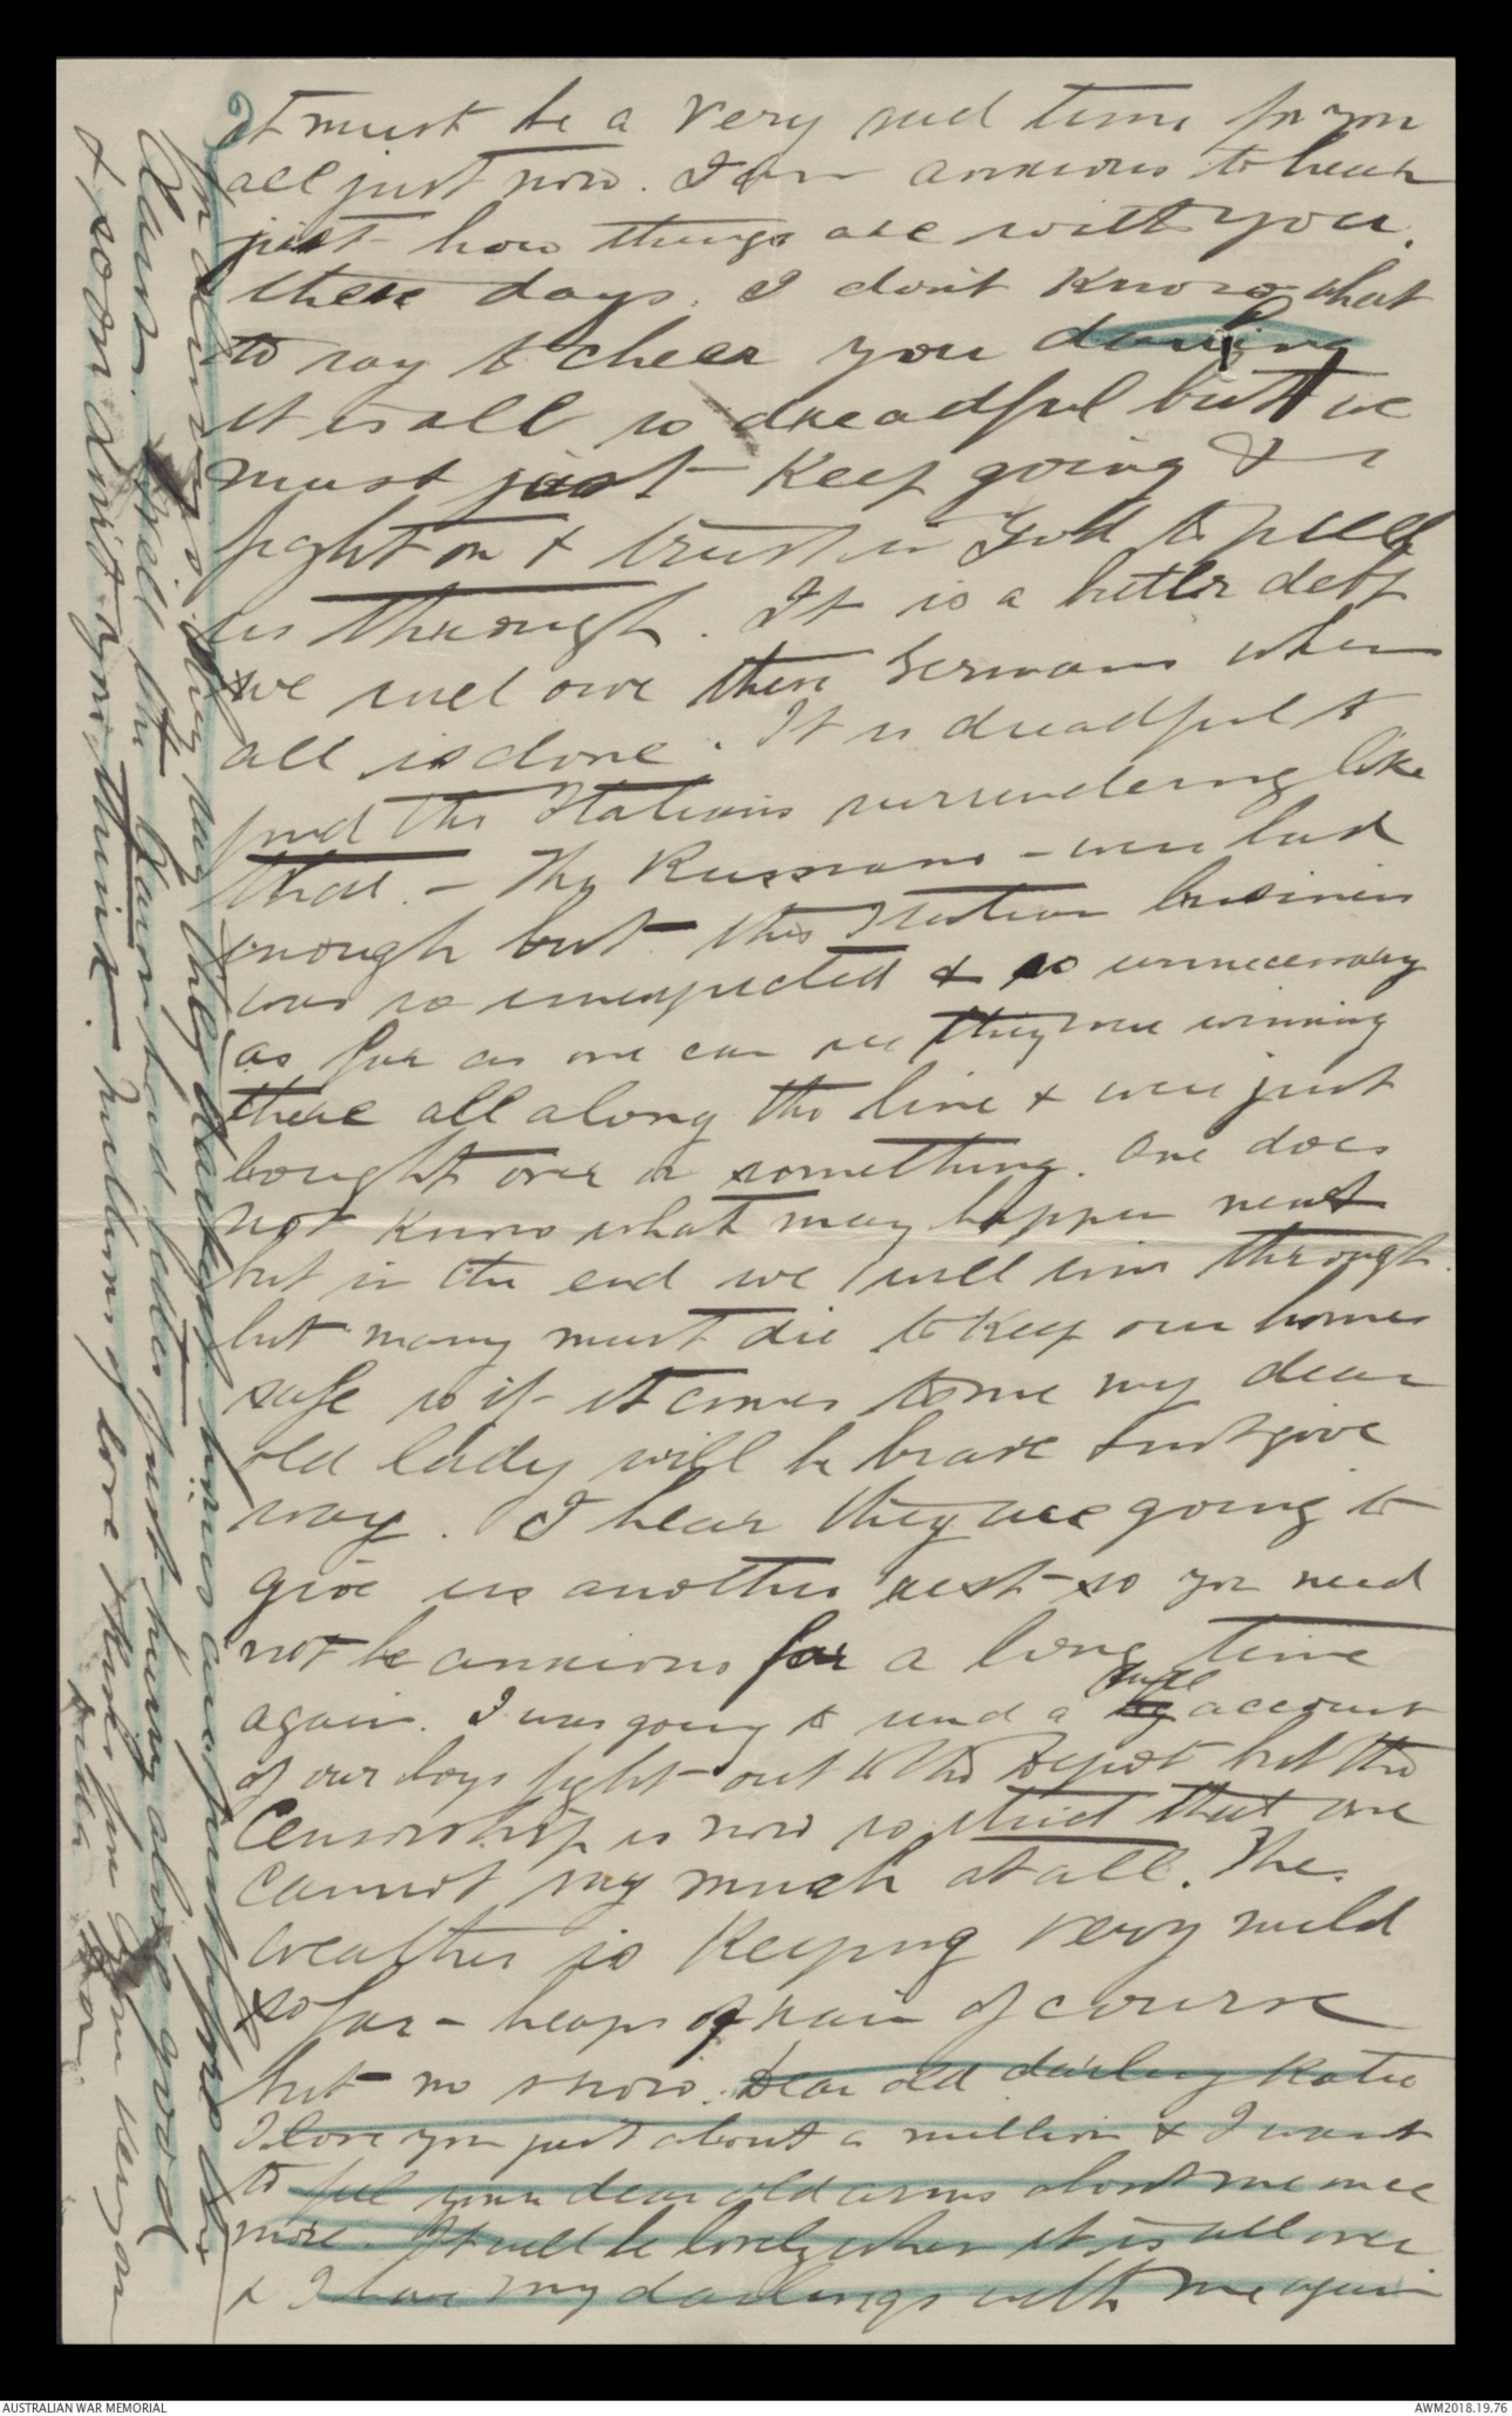 It must be a very sad time for you
all just now. I am anxious to hear
just how things are with you.
these days. I don't know what
to say to cheer you darling
it is all so dreadful but we
must just keep going &
fight on & trust in God to pull
us through. It is a bitter debt
we will owe these Germans when
all is done. It is dreadful to
find the Italians surrendering like
that. - The Russians - were bad
enough but this Italian business
was so unexpected & so unnecessary
as far as one can see they were winning
there all along the line & were just
bought over or something. One does
not know what may happen next
but in the end we will win through.
but many must die to keep our homes
safe so if it comes to me my dear
old lady will be brave & not give
way. I hear they are going to
give us another rest so you need
not be anxious for a long time
again. I was going to send a full account
of our boys fight out to the Depot but the
Censorship is now so strict that one
cannot say much at all. The
weather is keeping very mild
so far - heaps of rain of course
but no snow. Dear old darling Katie
I love you just about a million & I want
to feel your dear old arms about me once
more. It will be lovely when it is all over
& I have my darlings with me again
for always
they say they darkest hour is just before the
dawn. Well the dawn had better just hurry along good
& soon don't you think. Millions of love & kisses from your very own
AUSTRALIAN WAR MEMORIAL
AWM2018.19.76